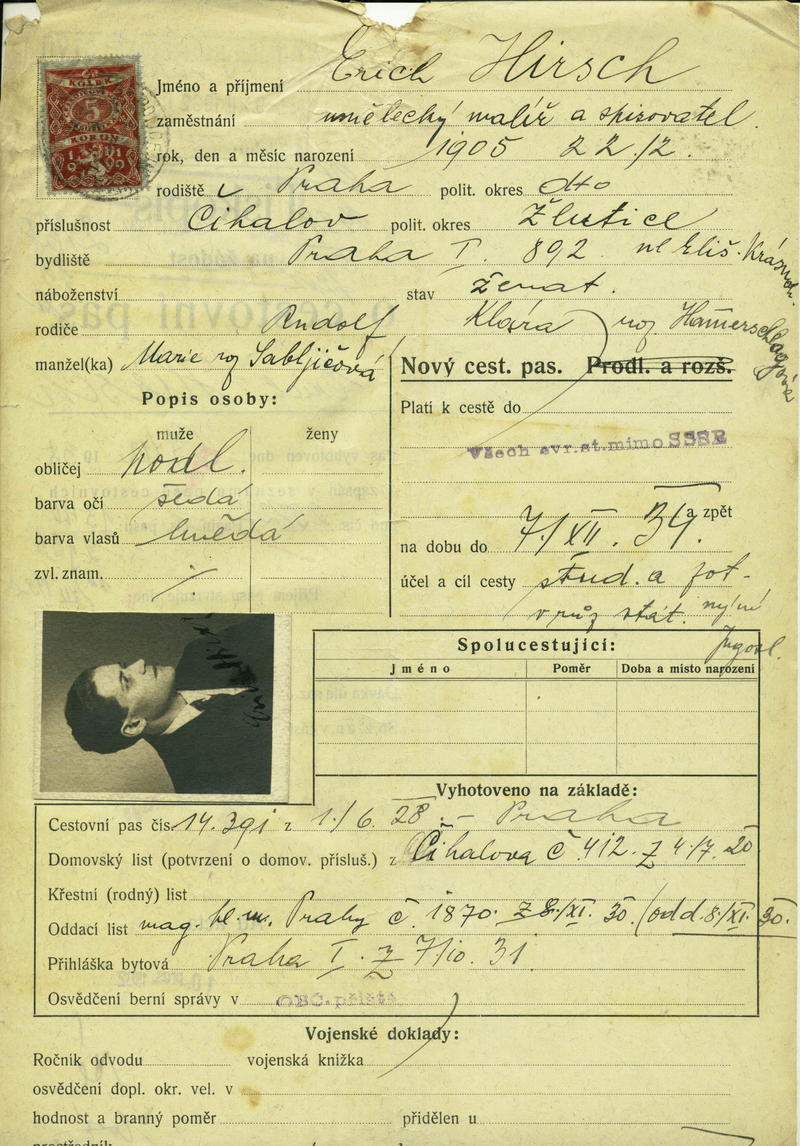 KOLEK
5
KORUN
1919
Jméno a příjmení Erich Hirsch
zaměstnání umělecký malíř a spisovatel
rok, den a měsíc narození 1905 22/2.
rodiště v Praha polit. okres dto
příslušnost Čihalov polit. okres Žlutice
bydliště Praha I. 892 ul Eliš. Krásnoh.
náboženství stav ženat.
rodiče Rudolf Klára roz Hamerschlagová
manžel(ka) Marie roz Sabljičová
Nový cest. pas. Prodl. a rozš.
Popis osoby:
muže ženy
obličej podl.
barva očí šedá
barva vlasů hnědá
zvl. znam. /
Platí k cestě do
Všech evr. st. mimo SSSR
a zpět
na dobu do 7./XII. 34.
účel a cíl cesty stud. a
v růz stát. nyní
Jugosl.
Spolucestující:
Jméno Poměr Doba a místo narození
Vyhotoveno na základě:
Cestovní pas čís. 14.391 z 1./6. 28 - Praha
Domovský list (potvrzení o domov. přísluš.) z Čihalova č 412. z 4/7. 20
Křestní (rodný) list
Oddací list mag. hl. m. Prahy č. 1870. z 8./XI. 30. (odd. 8/XI. 30.
Přihláška bytová Praha I. z 7/10. 31.
Osvědčení berní správy v
Vojenské doklady:
Ročník odvodu vojenská knížka
osvědčení dopl. okr. vel. v
hodnost a branný poměr přidělen u